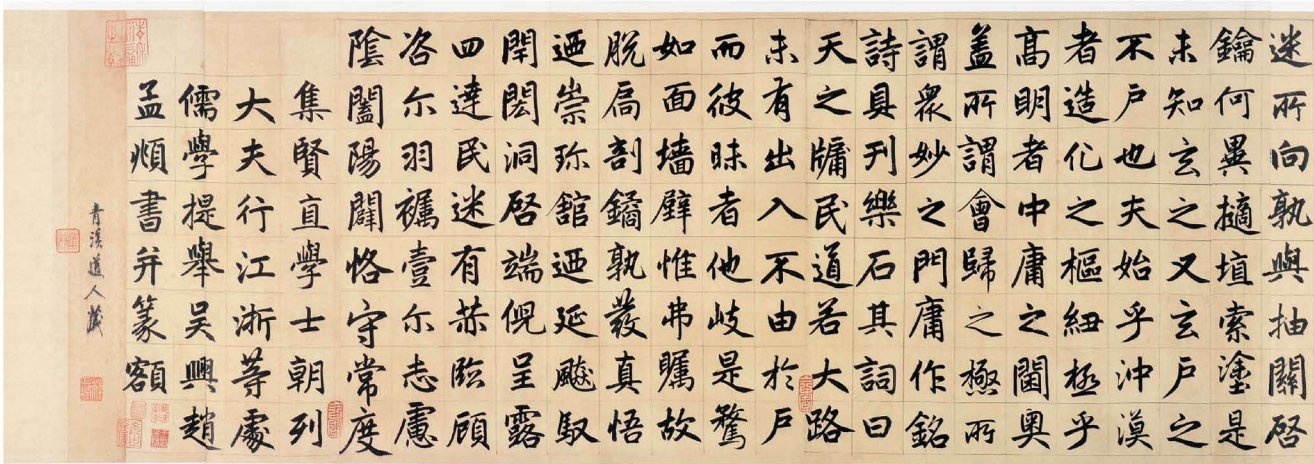 迷所向孰與抽關啓
鑰何異擿埴索塗是
未知玄之又玄户之
不户也夫始乎沖漠
者造化之樞紐極乎
高明者中庸之閫奥
盖所謂會歸之極所
謂衆妙之門庸作銘
詩具刊樂石其詞曰
天之牖民道若大路
未有出入不由於户
而彼昧者他岐是騖
如面墻壁惟弗矚故
脱扃剖鐍孰發真悟
迺崇珎舘迺延飈馭
閈閎洞啓端倪呈露
四達民迷有赫臨顧
咨尔羽襔壹尔志慮
陰闔陽闢恪守常度
集賢直學士朝列
大夫行江浙等處
儒學提舉吴興趙
孟頫書并篆額
青溪道人藏